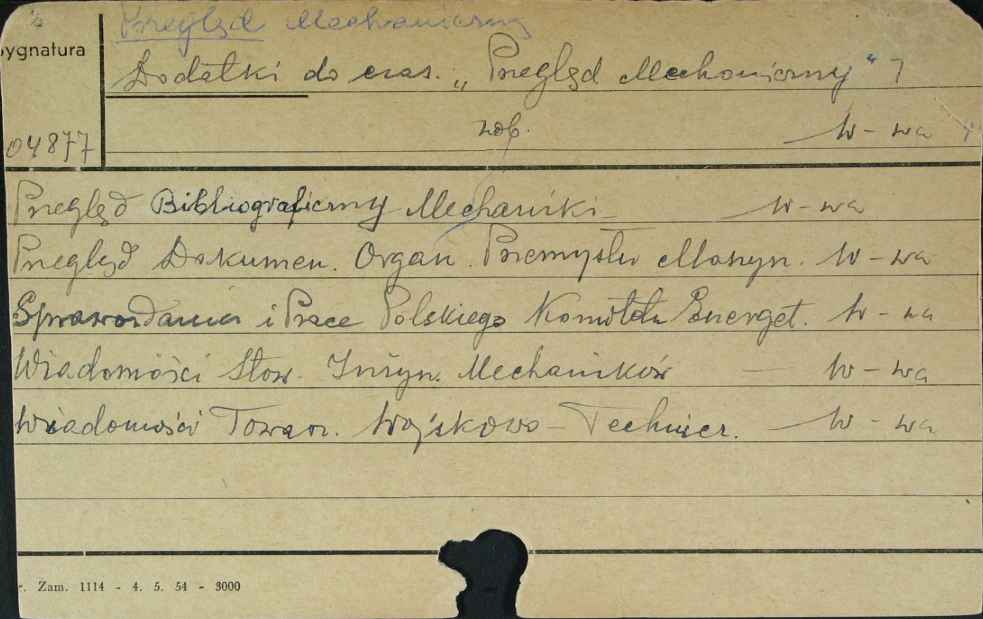 Przegląd Mechaniczny
Sygnatura
Dodatki do czas. „Przegląd Mechaniczny"
04877
zob. W-wa
Przegląd Bibliograficzny Mechaniki - W-wa
Przegląd Dokumen. Organ. Przemysłu Maszyn. W-wa
Sprawozdania i Prace Polskiego Komitetu Energet. W-wa
Wiadomości Stow. Inżyn. Mechaników — W-wa
Wiadomości Towarz. Wojskowo-Technicz. — W-wa
r. Zam. 1114 - 4. 5. 54 - 3000